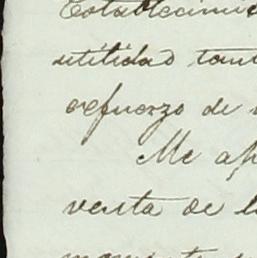 Establecimie
utilidad tam
esfuerzo de
Me ap
venta de l